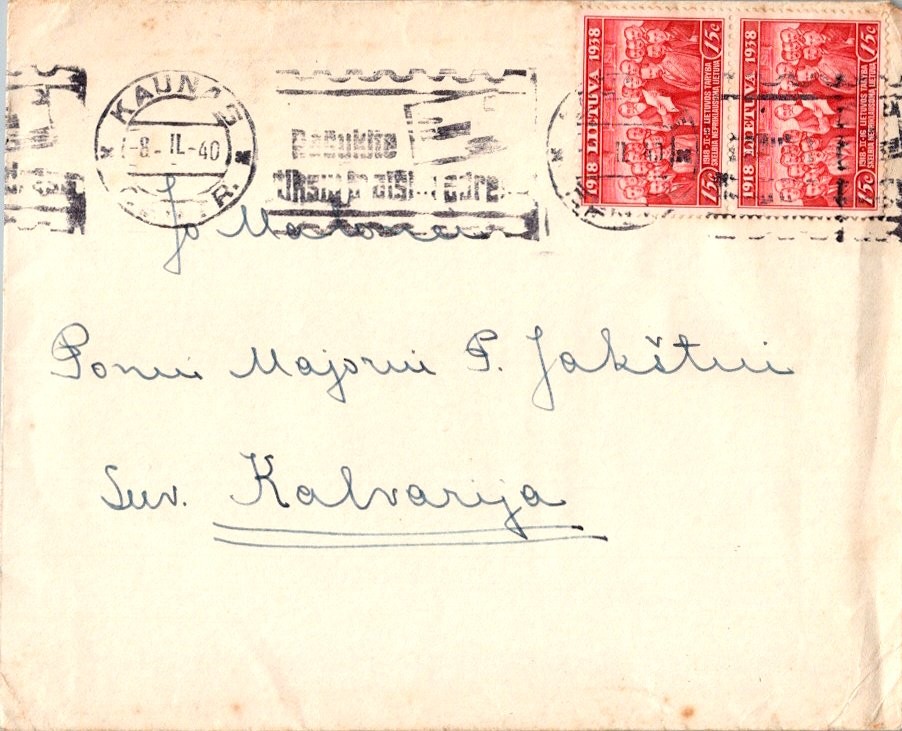 KAUNAS
-8.-II.-40
1918 LIETUVA 1938
15c
1918-II-16 LIETUVOS TARYBA
SKELBIA NEPRIKLAUSOMĄ LIETUVĄ
15c
1918 LIETUVA 1938
15c
1918-II-16 LIETUVOS TARYBA
SKELBIA NEPRIKLAUSOMĄ LIETUVĄ
15c
Jo Malonei
Ponui Majorui P. Jakštui
Suv. Kalvarija